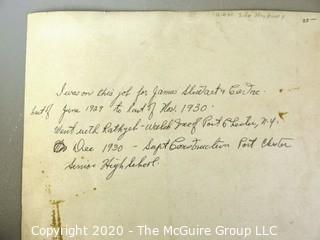 West Side Highway
25-
I was on this job for James Stewart & Co. Inc.
June 1929 to last of Nov. 1930.
Went with Rathgeb-Walsh Inc of Port Chester, N.Y.
Dec 1930 - Supt Construction Port Chester
Senior High School.
Copyright 2020 - The McGuire Group LLC